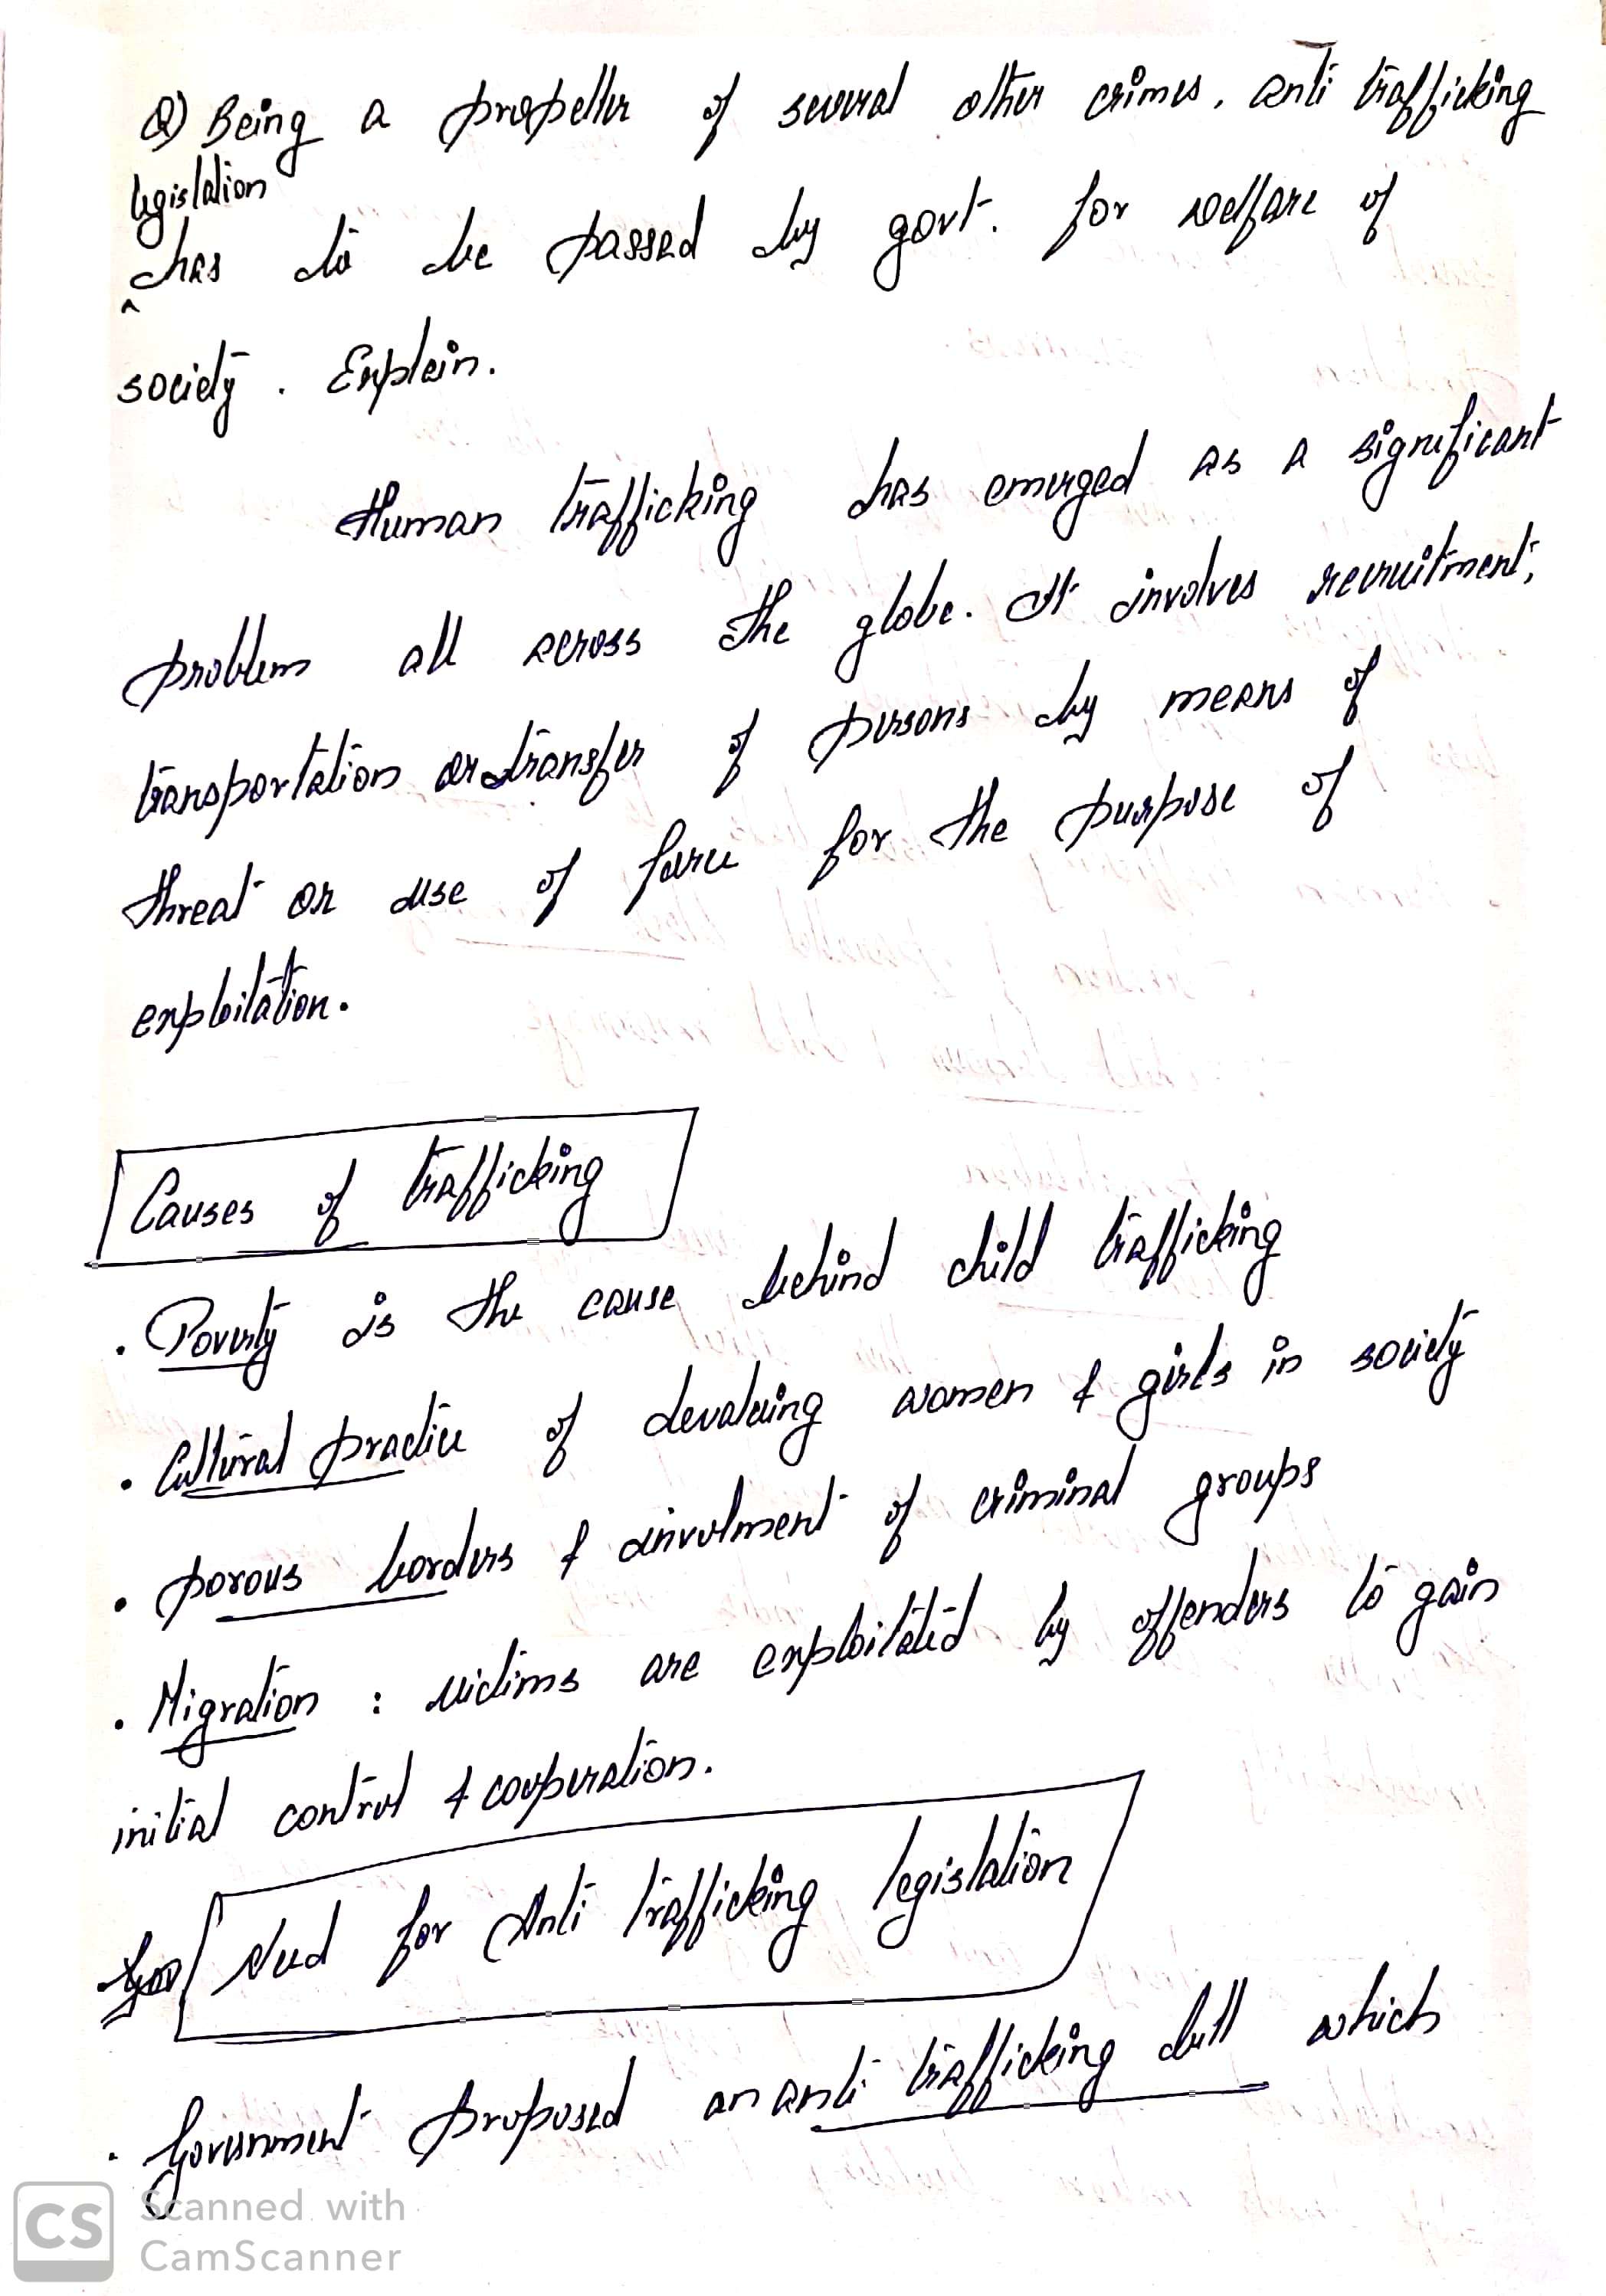 Q) Being a propeller of several other crimes, anti trafficking
legislation
has to be passed by govt. for welfare of
society. Explain.
Human trafficking has emerged as a significant
problem all across the globe. It involves recruitment,
transportation or transfer of persons by means of
threat or use of force for the purpose of
exploitation.
Causes of trafficking
· Poverty is the cause behind child trafficking
· Cultural practice of devaluing women & girls in society
· porous borders & involment of criminal groups
· Migration : victims are exploitated by offenders to gain
initial control & cooperation.
Need for Anti trafficking legislation
· Government proposed an anti trafficking bill which
CS Scanned with
CamScanner